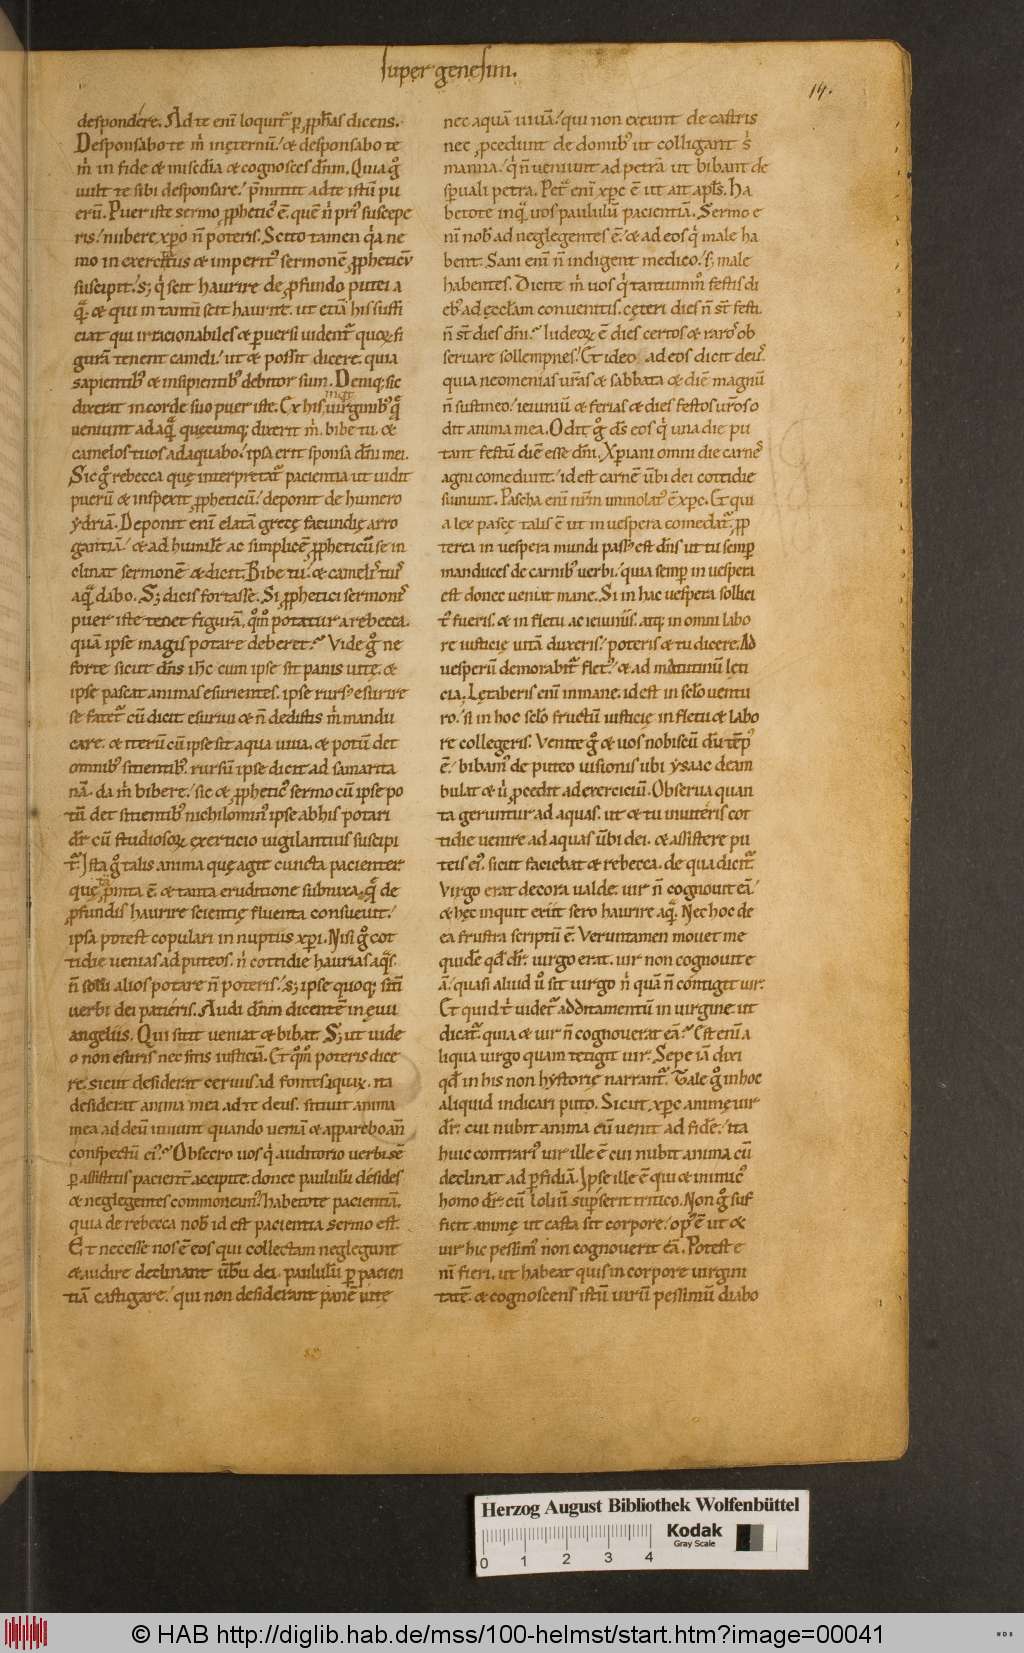 super genesim.
14.
despondere. Ad te enī loquit᷑ ꝑ ꝓphās dicens.
Desponsabo te m̄ in ęternū. / ⁊ desponsabo te
m̄ in fide ⁊ misc̄dia ⁊ cognosces dn̄m. Quia g̊
uult te sibi desponsare. / p̄mittit ad te istū pu
erū. Puer iste sermo ꝓpheticꝰ ē. quē n̄ priꝰ suscepe
ris. / nubere xp̄o n̄ poteris. Scito tamen qᵃ ne
mo in exercitus ⁊ imperitꝰ sermonē ꝓpheticū
suscipit. / s; qⁱ scit haurire de ꝓfundo putei a
q̄. ⁊ qui in tantū scit haurire. ut etiā his suffi
ciat qui irracionabiles ⁊ ꝑuersi uident᷑ quoꝝ fi
gurā tenent cameli. / ut ⁊ possit dicere. quia
sapientibꝰ ⁊ insipientibꝰ debitor sum. Deniq; sic
dixerat in corde suo puer iste. Ex his inqⁱt uirginibꝰ q̄
ueniunt ad aq̄. quęcumq; dixerit m̄. bibe tu. ⁊
camelos tuos adaquabo. / ipsa erit sponsa dn̄i mei.
Sic g̊ rebecca quę interpretat᷑ pacientia ut uidit
puerū ⁊ inspexit ꝓpheticū. / deponit de humero
ydriā. Deponit enī elatā grecę facundię arro
gantiā. / ⁊ ad humilē ac simplicē ꝓpheticū se in
clinat sermonē ⁊ dicit. Bibe tu. / ⁊ camelꝭ tuꝭ
aq̄ dabo. S; dicis fortasse. Si ꝓphetici sermonꝭ
puer iste tenet figurā. qᵒmᵒ potatur a rebecca.
quā ipse magis potare deberet? Vide g̊ ne
forte sicut dn̄s ih̄c cum ipse sit panis uitę. ⁊
ipse pascat animas esurientes. ipse rursꝰ esurire
se fatet᷑ cū dicit. esuriui ⁊ n̄ dedistis m̄ mandu
care. ⁊ iterū cū ipse sit aqua uiua. ⁊ potū det
omnibꝰ sitientibꝰ. rursū ipse dicit ad samarita
nā. da m̄ bibere. / sic ⁊ ꝓpheticꝰ sermo cū ipse po
tū det sitientibꝰ nichilominꝰ ipse ab his potari
dr̄ cū studiosoꝝ exerticio uigilantius suscipi
t᷑. Ista g̊ talis anima quę agit cuncta pacienter.
quę printa ē. ⁊ tanta eruditione subnixa. q̄ de
ꝓfundis haurire scientię fluenta consueuit. /
ipsa potest copulari in nuptiis xp̄i. Nisi g̊ cot
tidie uenias ad puteos. nⁱ cottidie haurias aqᵃs.
n̄ solū alios potare n̄ poteris. / s; ipse quoq; sitī
uerbi dei patiéris. Audi dn̄m dicentē in ęuu
angeliis. Qui sitit ueniat ⁊ bibat. S; ut uide
o non esuris nec sitis iusticiā. Et qᵒmᵒ poteris dice
re. sicut desiderat ceruus ad fontes aquaꝝ. ita
desiderat anima mea ad te deus. sitiuit anima
mea ad deū uiuū quando ueniā ⁊ apparebo an̄
conspectū eiꝰ? Obsecro uos qⁱ auditorio uerbi sē
ꝑ assistitis pacient̄ accipite. donec paululū désides
⁊ neglegentes commoneamꝰ. habetote pacientiā.
quia de rebecca nob̄ id est pacientia sermo est.
Et necesse nos ē eos qui collectam neglegunt
⁊ audire declinant ūbū dei. paululū ꝑ pacien
tiā castigare. / qui non desiderant panē uitę
nec aquā uiuā. / qui non exeunt de castris
nec ꝓcedunt de domibꝰ ut colligant s̄
manna. / qⁱ n̄ ueniunt ad petrā ut bibant de
sp̄uali petra. Petᵃ enī xp̄c ē ut ait apl̄s. Ha
betote inq̄ uos paululū pacientiā. Sermo e
nī nob̄ ad neglegentes ē. / ⁊ ad eos qⁱ male ha
bent. Sani enī n̄ indigent medico. / s; male
habentes. Dicite m̄ uos qⁱ tantummᵒ festis di
ebꝰ ad ęccl̄am conuenitis. cęteri dies n̄ st̄ festi.
n̄ st̄ dies dn̄i? Iudeoꝝ ē dies certos ⁊ raros ob
seruare sollempnes. / Et ideo ad eos dicit deus.
quia neomenias ur̄as ⁊ sabbata ⁊ diē magnū
n̄ sustineo. / ieiuniū ⁊ ferias ⁊ dies festos ur̄os o
dit anima mea. Odit g̊ d̄s eos qⁱ una die pu
tant festū diē esse dn̄i. Xp̄iani omni die carneꝭ
agni comedunt. / id est carnē ūbi dei cottidie
sumunt. Pascha enī nr̄m immolatꝰ ē xp̄c. Et qui
a lex pascę talis ē ut in uespera comedat᷑. ꝓp
terea in uespera mundi passꝰ est dn̄s ut tu semꝑ
manduces de carnibꝰ uerbi. / quia semꝑ in uespera
est donec ueniat mane. Si in hac uespera sollici
tꝰ fueris. ⁊ in fletu ac ieiuniis. atq; in omni labo
re iusticię uitā duxeris. / poteris ⁊ tu dicere. Ad
uesperū demorabit᷑ fletꝰ. / ⁊ ad matutinū lęti
cia. Lętaberis enī in mane. id est in sclo uentu
ro. / si in hoc sclo fructū iusticię in fletu ⁊ labo
re collegeris. Venite g̊ ⁊ uos nobiscū dū tēpꝰ
ē. / bibamꝰ de puteo uisionis ubi ysaac deam
bulat ⁊ uⁱ ꝓcedit ad exerciciū. Obserua quan
ta geruntur ad aquas. ut ⁊ tu inuitéris cot
tidie uenire ad aquas ūbi dei. ⁊ assistere pu
teis eiꝰ. sicut faciebat ⁊ rebecca. de qua dicit᷑.
Virgo erat decora ualde. uir n̄ cognouit eā. /
⁊ hęc inquit exiit sero haurire aq̄. Nec hoc de
ea frustra scriptū ē. Veruntamen mouet me
quid ē qd̄ dr̄. uirgo erat. uir non cognouit e
ā. / quasi aliud uᵒ sit uirgo nⁱ quā n̄ contigit uir.
Et quid tⁱ uidet᷑ additamentū in uirgine. ut
dicat᷑. quia ⁊ uir n̄ cognouerat eā? Est enī a
liqua uirgo quam tetigit uir. Sepe iā dixi
qd̄ in his non hystorię narrant᷑. Tale g̊ in hoc
aliquid indicari puto. Sicut xp̄c animę uir
dr̄. cui nubit anima cū uenit ad fidē. / ita
huic contrariꝰ uir ille ē cui nubit anima cū
declinat ad ꝑfidiā. Ipse ille ē qui ⁊ inimicꝰ
homo dr̄. cū loliū supserit tritico. Non g̊ suf
ficit animę ut casta sit corpore. / opꝰ ē ut ⁊
uir hic pessimꝰ non cognouerit eā. Potest e
nī fieri. ut habeat quis in corpore uirgini
tatē. ⁊ cognoscens istū uirū pessimū diabo
Herzog August Bibliothek Wolfenbüttel
Kodak
Gray Scale
0 1 2 3 4
© HAB http://diglib.hab.de/mss/100-helmst/start.htm?image=00041